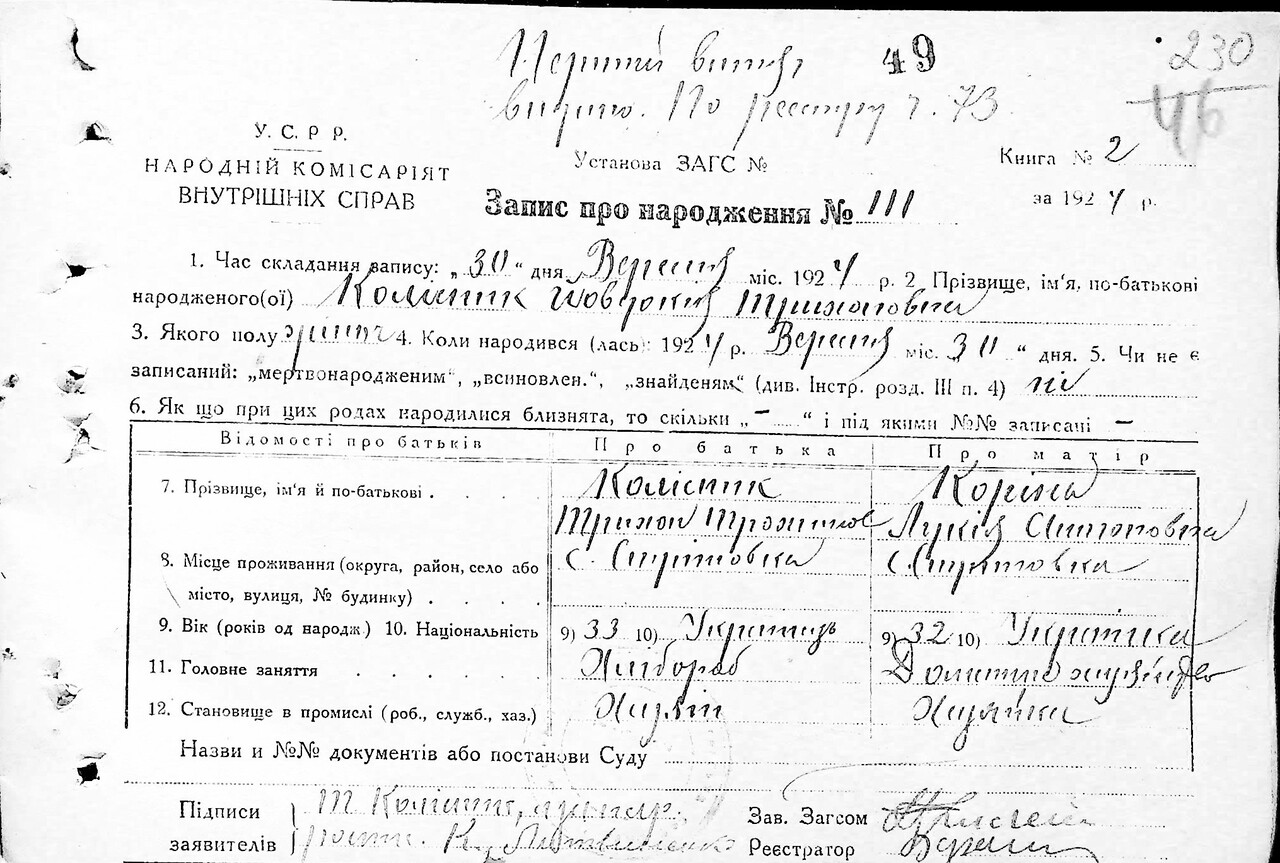 Перший витяг 49 230
видано. По реєстру ч. 73. 46
У. С. Р Р.
НАРОДНІЙ КОМІСАРІЯТ
ВНУТРІШНІХ СПРАВ
Установа ЗАГС №
Книга № 2
Запис про народження № 111
за 1924 р.
1. Час складання запису: „30“ дня Вересня міс. 1924 р. 2. Прізвище, ім'я, по-батькові
народженого(ої) Колісник Трихоновна
3. Якого полу жіноч 4. Коли народився (лась): 1924 р. Вересня міс. 30 “ дня. 5. Чи не є
записаний: „мертвонародженим“, „всиновлен.“, „знайденям“ (див. Інстр. розд. III п. 4) ні
6. Як що при цих родах народилися близнята, то скільки „ – “ і під якими №№ записані –
Відомості про батьків Про батька Про матір
7. Прізвище, ім'я й по-батькові . . . . Колісник Коріна
Трихон Лукія Антоновна
8. Місце проживання (округа, район, село або с. с.
місто, вулиця, № будинку) . . . .
9. Вік (років од народж.) 10. Національність 9) 33 10) Українець 9) 32 10) Українка
11. Головне заняття . . . . . Хлібороб
12. Становище в промислі (роб., служб., хаз.) Хазяїн Хазяйка
Назви и №№ документів або постанови Суду
Підписи Т Колісник, Зав. Загсом
заявителів Реєстратор